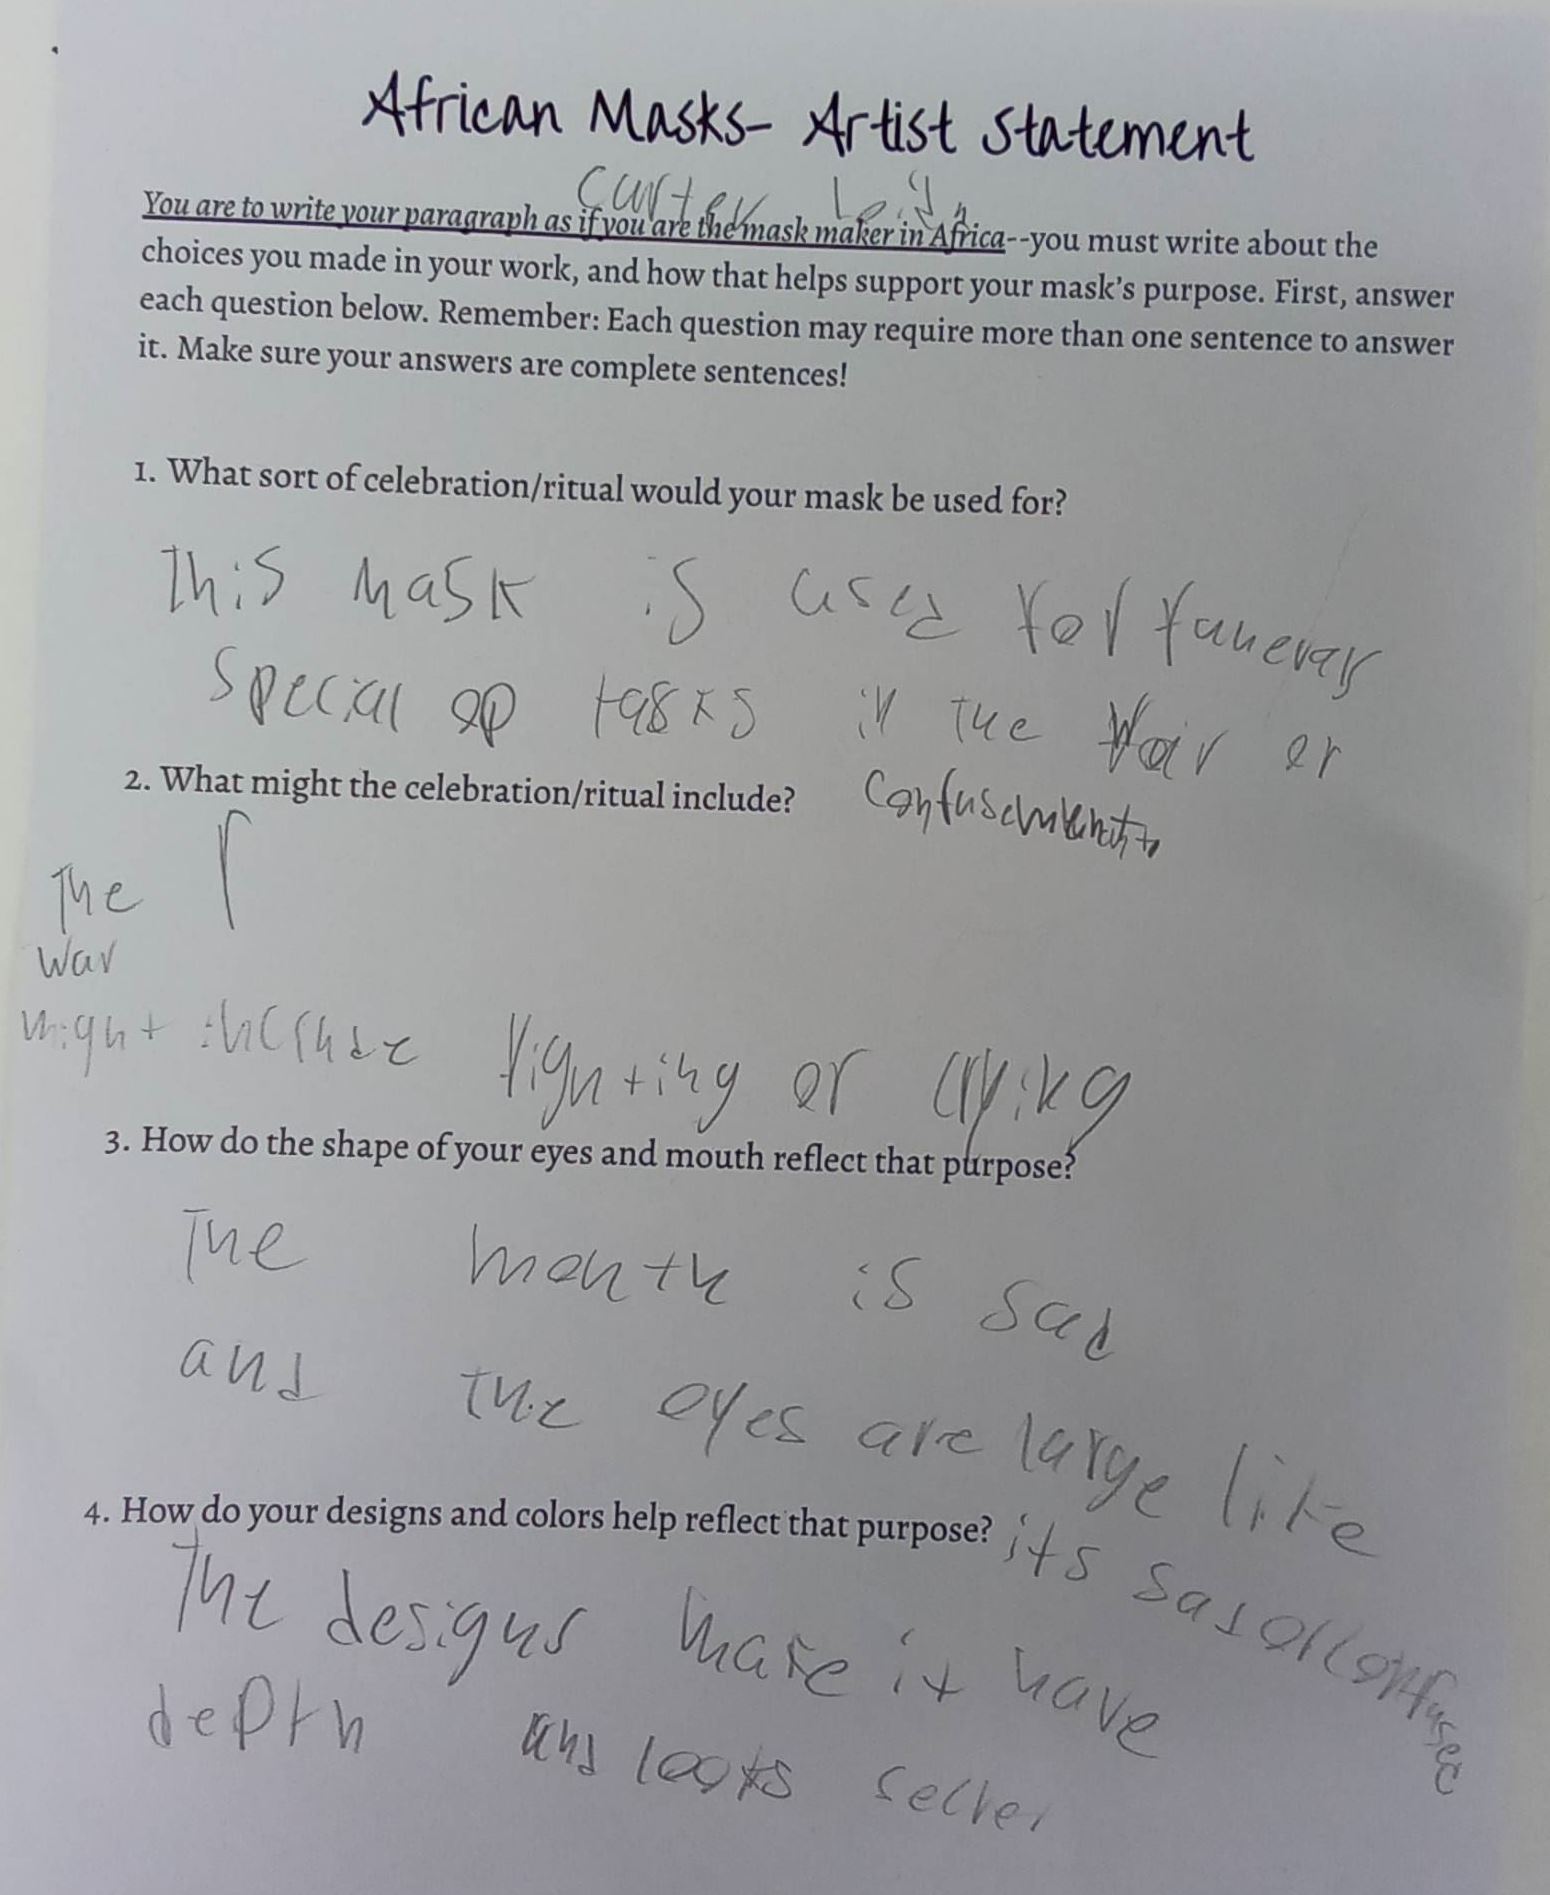 African Masks- Artist Statement
Carter
You are to write your paragraph as if you are the mask maker in Africa--you must write about the
choices you made in your work, and how that helps support your mask's purpose. First, answer
each question below. Remember: Each question may require more than one sentence to answer
it. Make sure your answers are complete sentences!
1. What sort of celebration/ritual would your mask be used for?
This mask is used for funerals
special op tasks in the war or
confusement
2. What might the celebration/ritual include?
The
war
might include fighting or crying
3. How do the shape of your eyes and mouth reflect that purpose?
The mouth is sad
and the eyes are large like
its sad or confused
4. How do your designs and colors help reflect that purpose?
The designs make it have
depth and looks